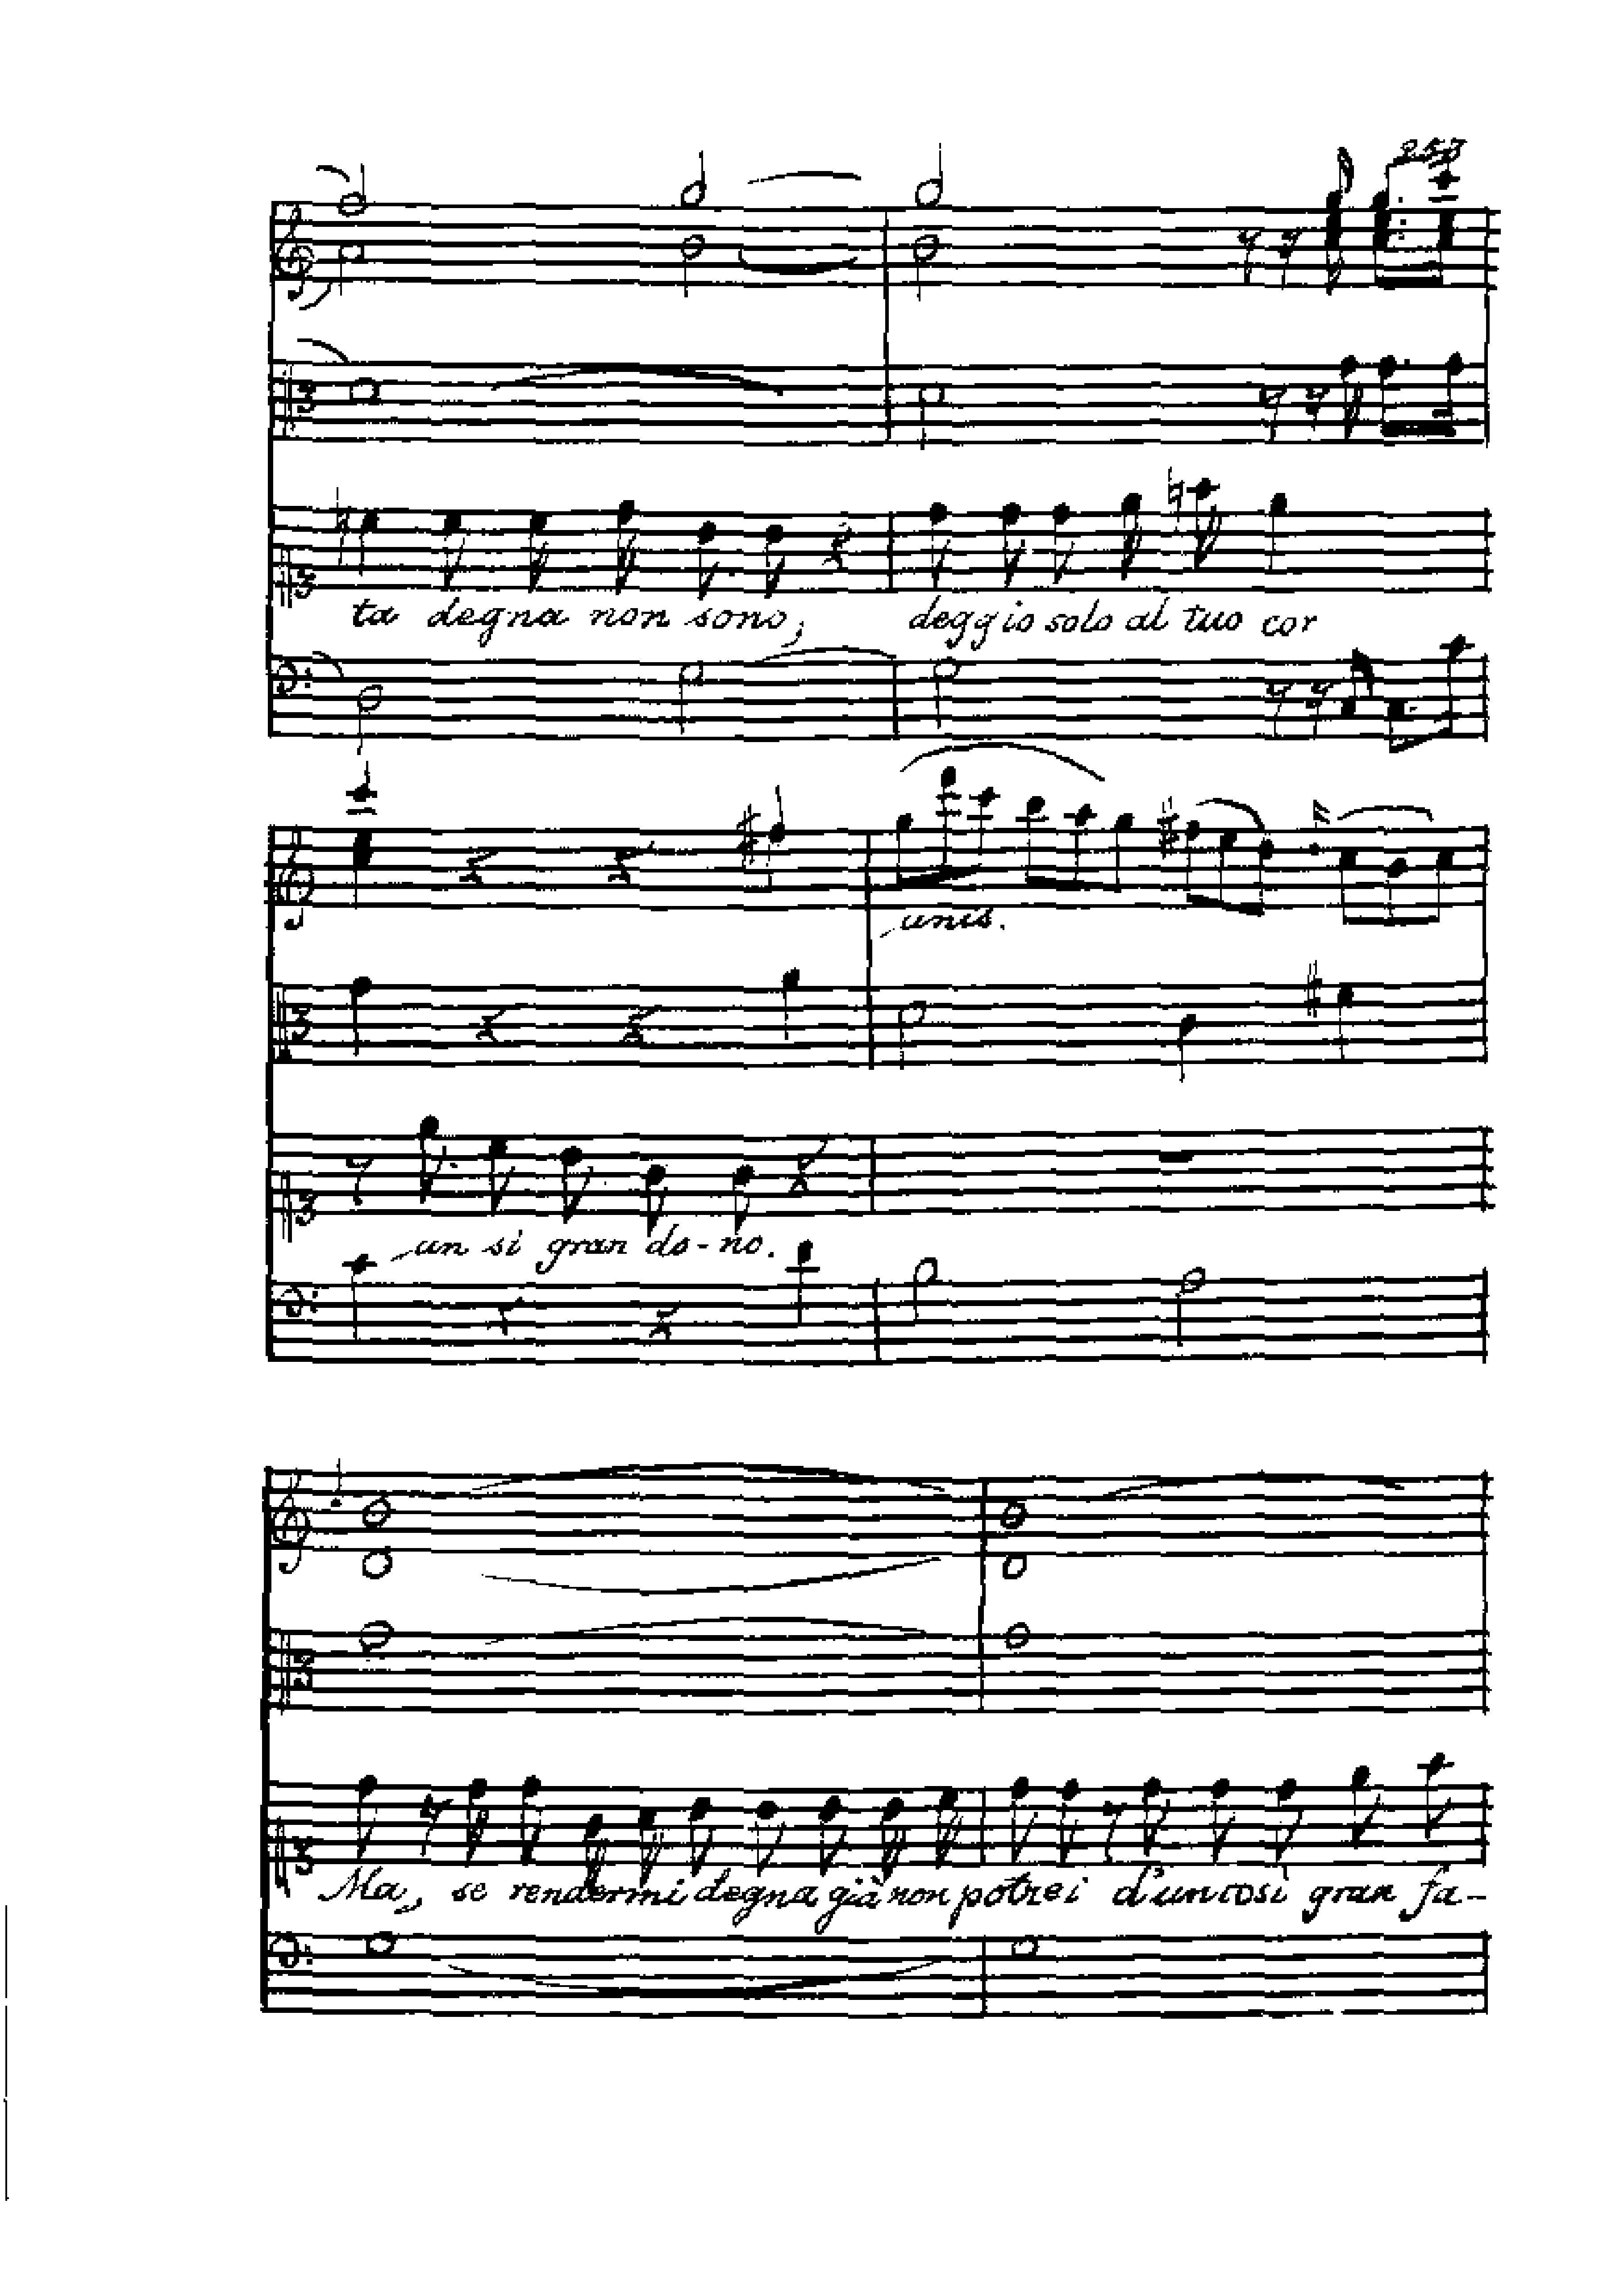 253
ta degna non sono; deggio solo al tuo cor
unis.
un si gran do-no.
Ma, se rendermi degna già non potrei d'un così gran fa-